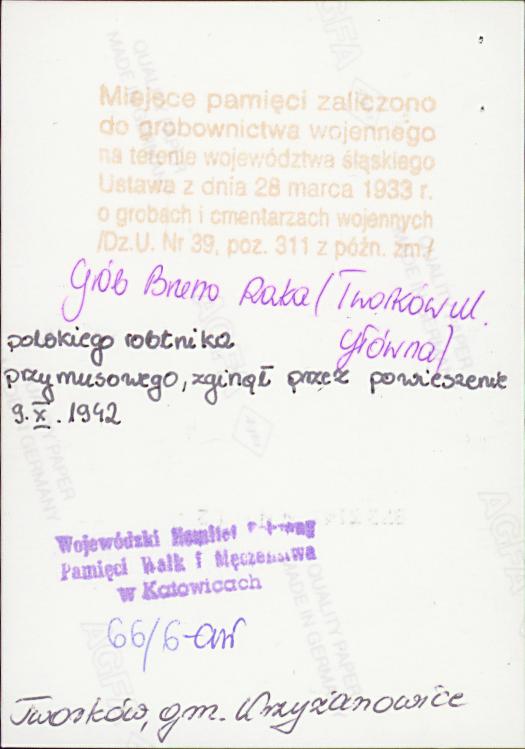 Miejsce pamięci zaliczono
do grobownictwa wojennego
na terenie województwa śląskiego
Ustawa z dnia 28 marca 1933 r.
o grobach i cmentarzach wojennych
/Dz.U. Nr 39, poz. 311 z późn. zm./
Grób Bruno Raka (Tworków ul.
Główna)
polskiego robtnika
przymusowego, zginął przez powieszenie
9.X.1942
Wojewódzki Komitet
Pamięci Walk i Męczeństwa
w Katowicach
66/6-
Tworków, gm. Krzyżanowice
AGFA
QUALITY PAPER
MADE IN GERMANY